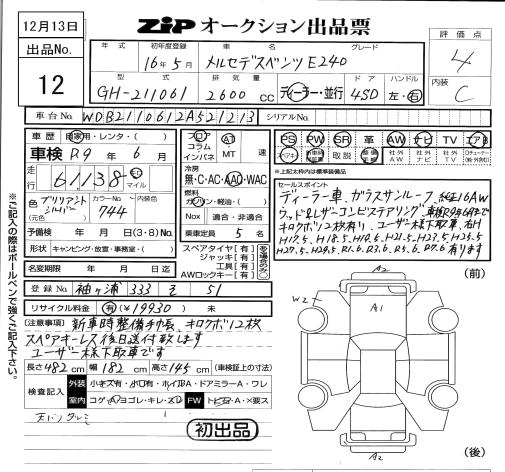 12月13日
ZIP オークション出品票
出品No.
12
年式 初年度登録 車名 グレード
16年5月 メルセデスベンツ E240
評価点
4
内装
C
型式 排気量 ドア ハンドル
GH-211061 2600cc ディーラー・並行 4SD 左・右
車台No. WDB2110612A521213 シリアルNo.
車歴 自家用・レンタ・( )
車検 R.9年6月
走行 61138 km マイル
色 ブリリアントシルバー (元色) カラーNo. 744 内装色
予備検 年 月 日(3・8)No.
形状 キャンピング・放置・事務室・( )
名変期限 年 月 日迄
シフト フロア コラム インパネ AT・MT 速
冷房
無・C・AC・AAC・WAC
燃料
ガソリン・軽油・( )
Nox 適合・非適合
乗車定員 5 名
スペアタイヤ【有】
ジャッキ【有】
工具【有】
AWロックキー【有】
PS PW SR 革 AW ナビ TV エアB
取説 社外AW 社外ナビ 社外TV
※上記太枠内は標準装備品
セールスポイント
ディーラー車、ガラスサンルーフ、純正16AW
ウッド&レザーコンビステアリング、車検R9年6月まで
キロクボ12枚有り、ユーザー様下取車、右H
H17.5、H18.5、H19.6、H21.5、H23.5、H25.5
H27.5、H29.5、R1.6、R3.6、R5.6、R7.6 有ります
登録No. 袖ヶ浦 333 そ 51
リサイクル料金 有(¥19930) 未
(注意事項) 新車時整備手帳、キロクボ12枚
スペアキーレス後日送付致します
ユーザー様下取車です
長さ482cm 幅182cm 高さ145cm (車検証上の寸法)
検査記入 外装 小キズ有・小凹有・ホイルA・ドアミラーA・ワレ
室内 コゲA・ヨゴレ・キレ・スレ FW トビ石・A・×要ス
天バリタルミ
初出品
※ご記入の際はボールペンで強くご記入下さい。
(前)
A2
W2
A1
A2
(後)